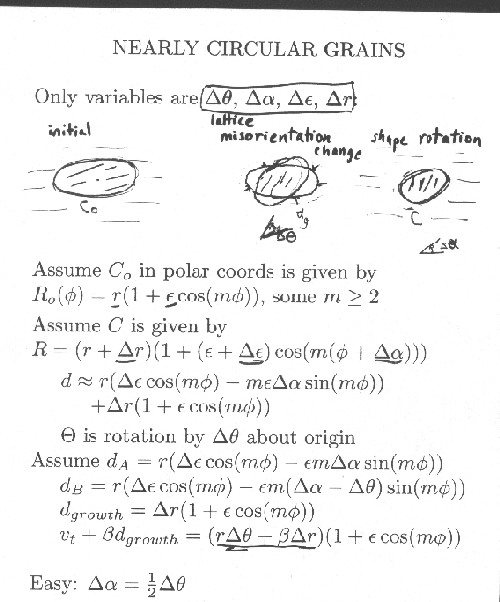 NEARLY CIRCULAR GRAINS
Only variables are Δθ, Δα, Δϵ, Δr:
initial
lattice
misorientation
change
shape rotation
C₀
θ
C
Assume Cₒ in polar coords is given by
Rₒ(ϕ) = r(1 + ϵcos(mϕ)), some m ≥ 2
Assume C is given by
R = (r + Δr)(1 + (ϵ + Δϵ) cos(m(ϕ + Δα)))
d ≈ r(Δϵ cos(mϕ) − mϵΔα sin(mϕ))
+Δr(1 + ϵ cos(mϕ))
Θ is rotation by Δθ about origin
Assume d_A = r(Δϵ cos(mϕ) − ϵmΔα sin(mϕ))
d_B = r(Δϵ cos(mϕ) − ϵm(Δα − Δθ) sin(mϕ))
d_growth = Δr(1 + ϵ cos(mϕ))
v_t + βd_growth = (rΔθ − βΔr)(1 + ϵ cos(mϕ))
Easy: Δα = ½Δθ